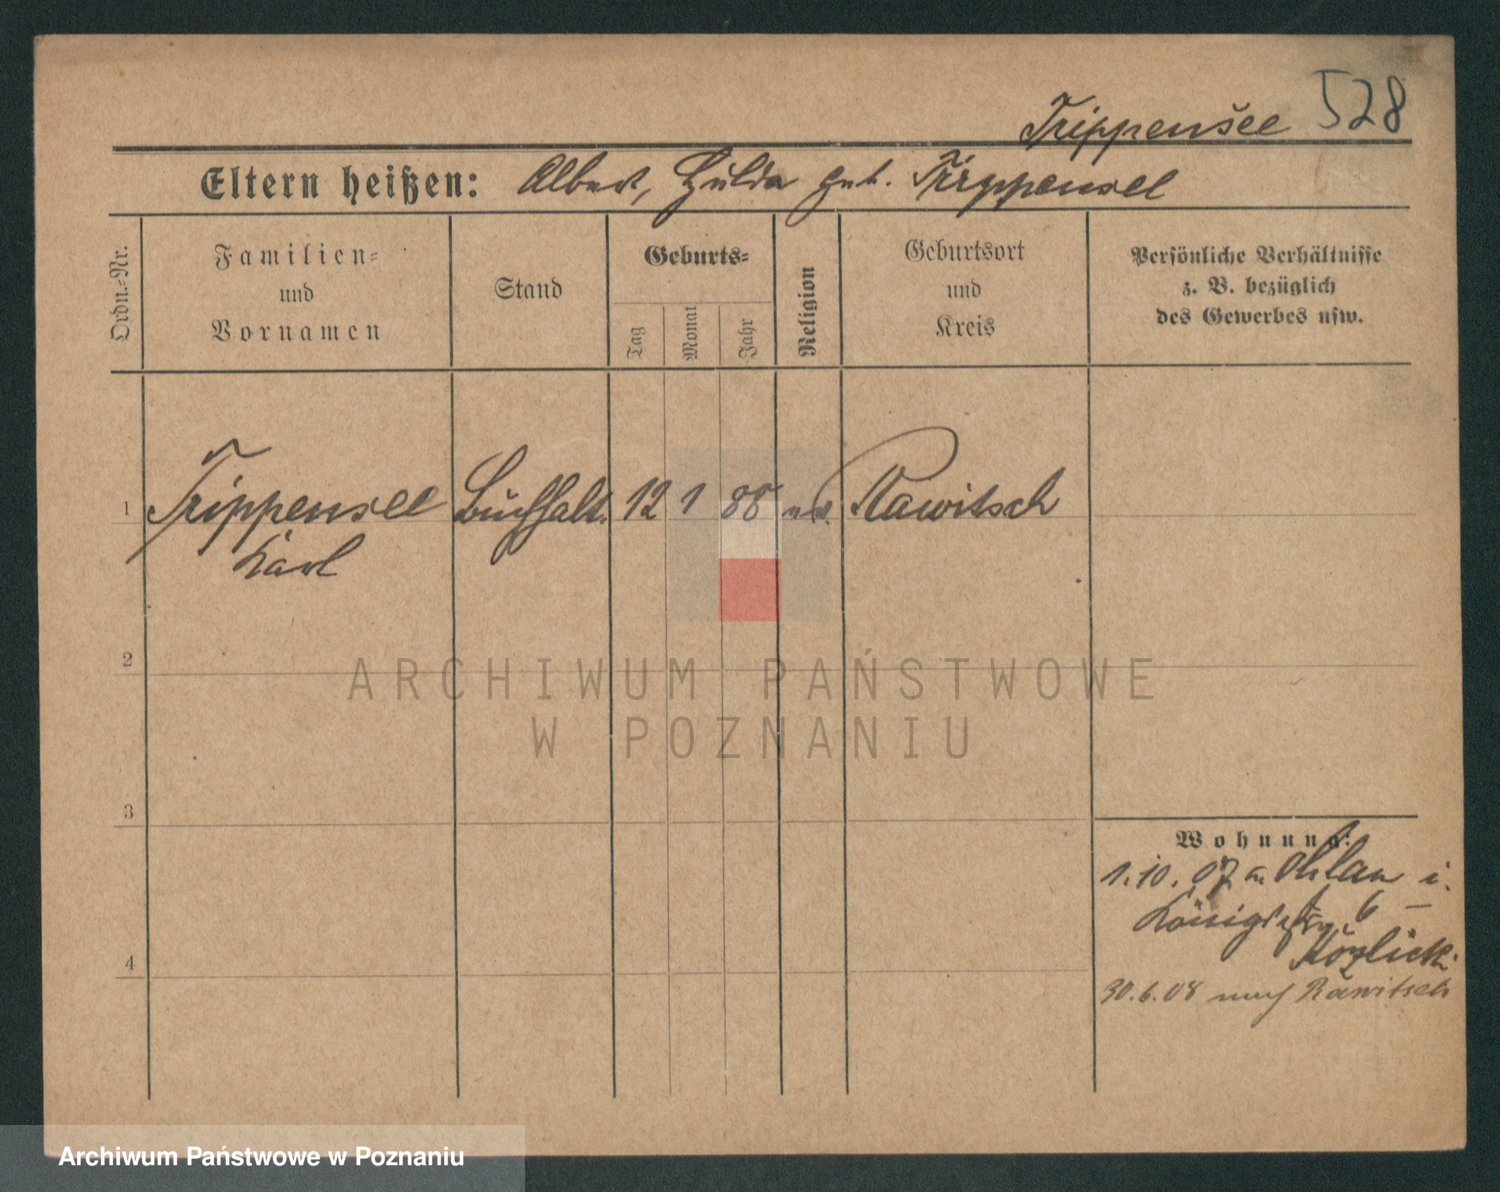 Trippensee 528
Eltern heißen: Albert, Hulda geb. Trippensee
Ordn.-Nr.
Familien-
und
Vornamen
Stand
Geburts-
Tag
Monat
Jahr
Religion
Geburtsort
und
Kreis
Persönliche Verhältnisse
z. B. bezüglich
des Gewerbes usw.
1 Trippensee Buchhalt. 12 1 88 ev. Rawitsch
Karl
2
3
4
Wohnung:
1.10.07 a. Ohlau i.
6
30.6.08 nach Rawitsch
ARCHIWUM PAŃSTWOWE
W POZNANIU
Archiwum Państwowe w Poznaniu